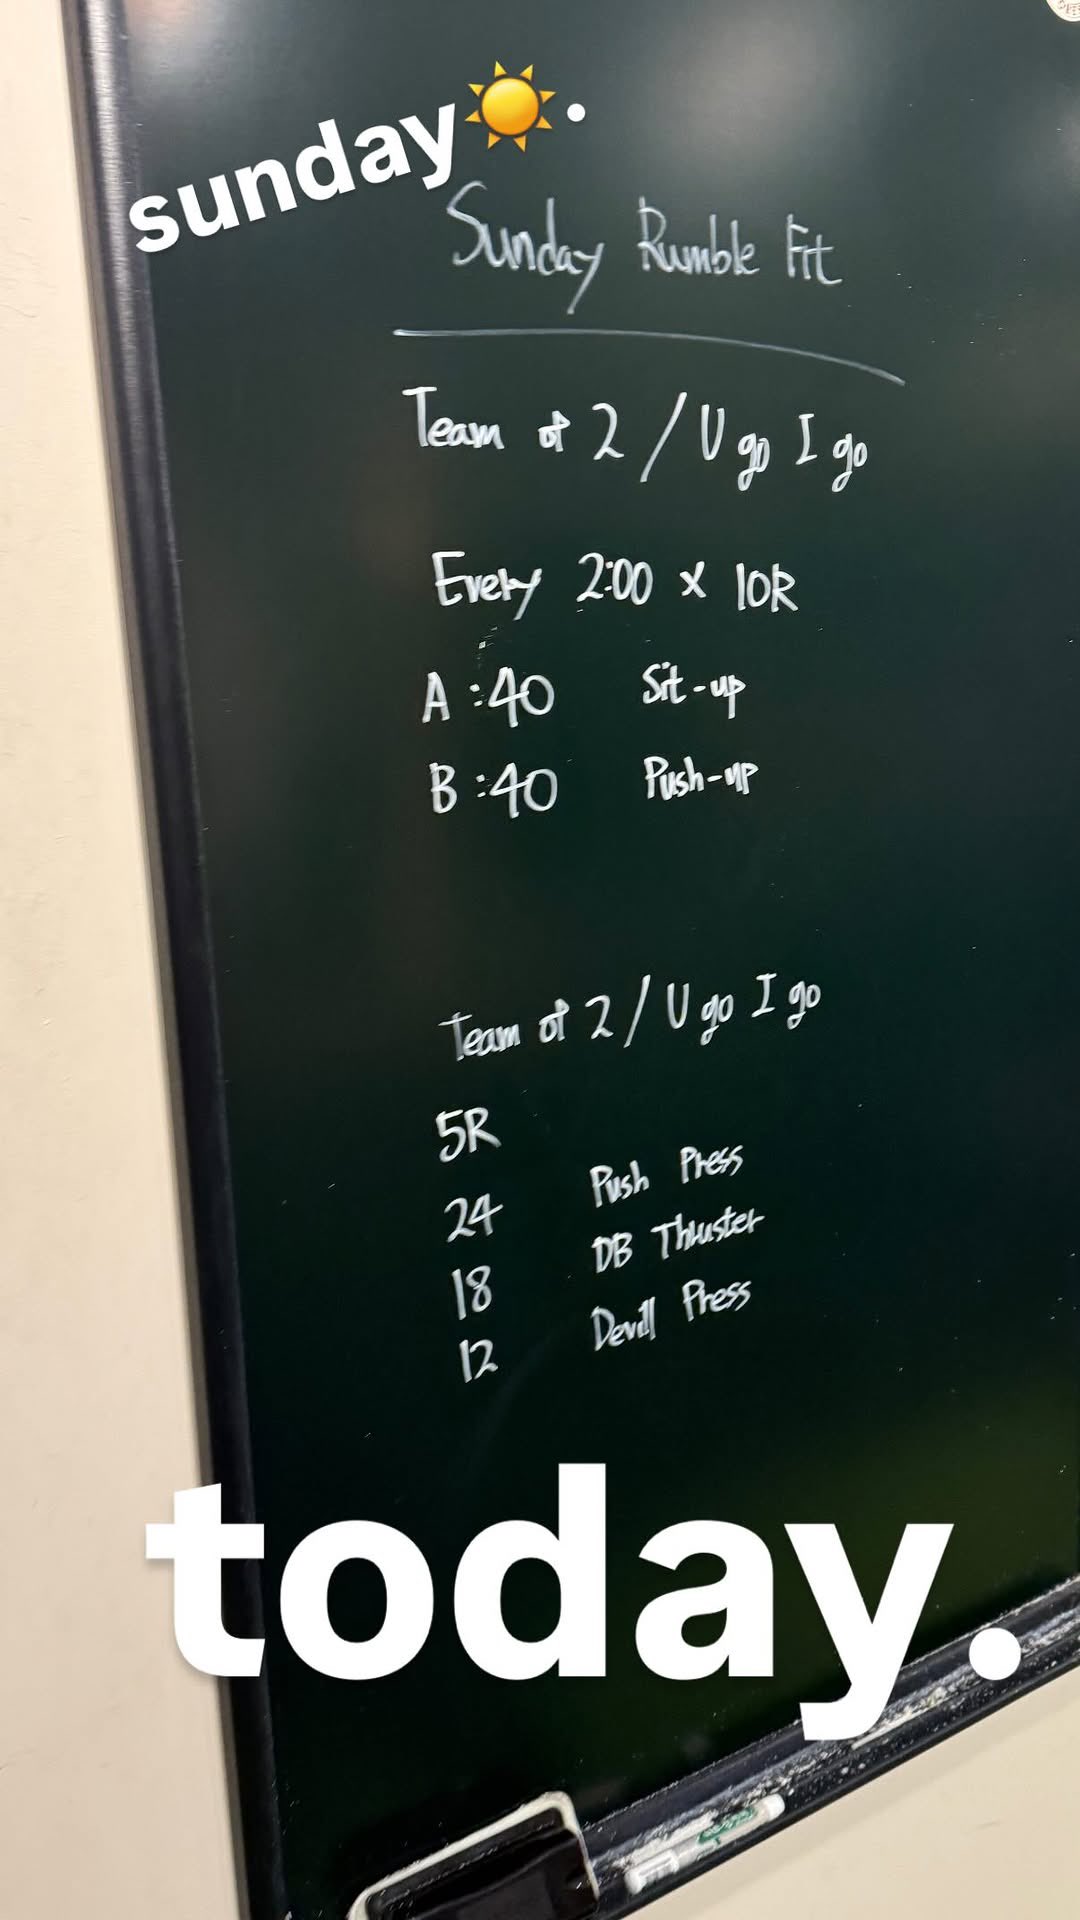 sunday☀️.
Sunday Rumble Fit
Team of 2 / U go I go
Every 2:00 x 10R
A :40 Sit-up
B :40 Push-up
Team of 2 / U go I go
5R
24 Push Press
18 DB Thruster
12 Devill Press
today.